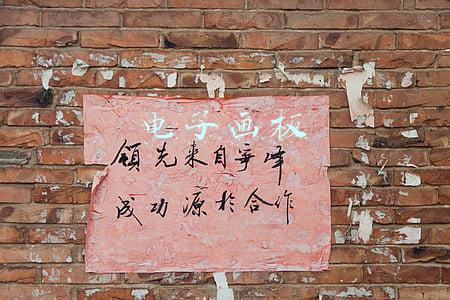 电子画板
领先来自争峰
成功源於合作